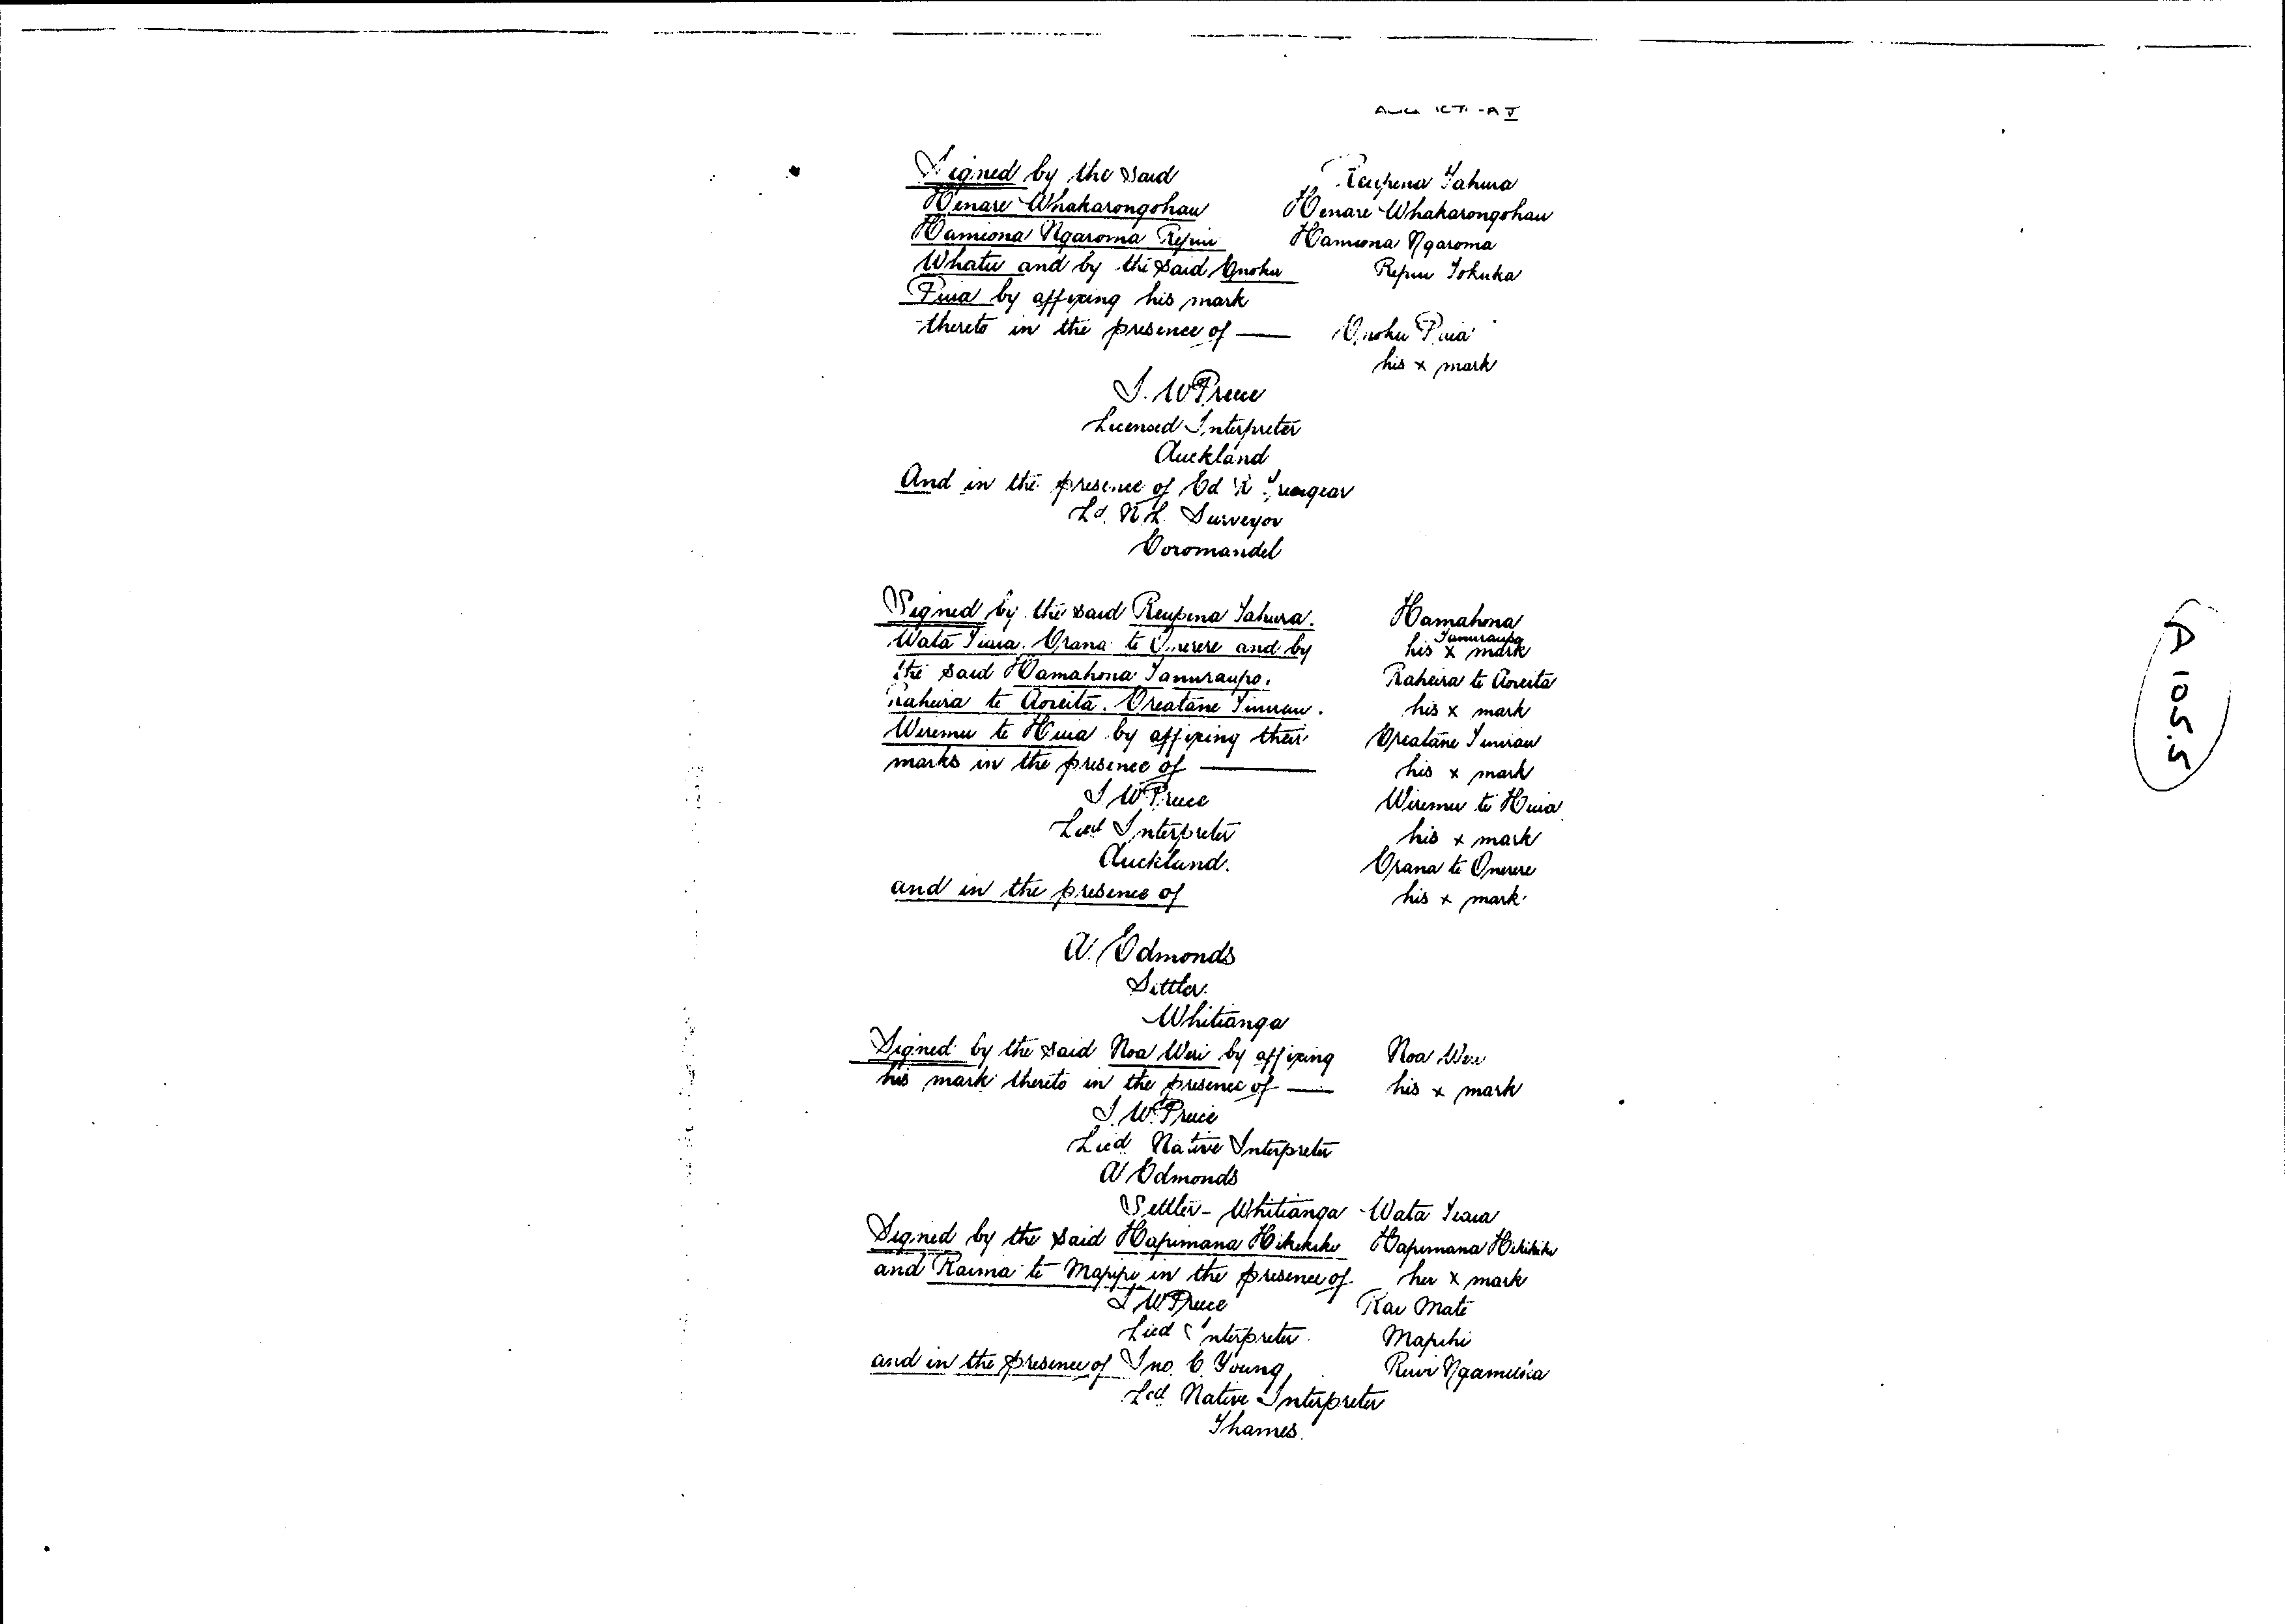 Signed by the said Reupena Tahura
Henare Whakarongohau Henare Whakarongohau
Hamiona Ngaroma Repiu Hamiona Ngaroma
Whatu and by the said Onohu Repiu Tokuka
Puia by affixing his mark
thereto in the presence of — Onohu Puia
his x mark
J. W Preece
Licensed Interpreter
Auckland
And in the presence of Ed R Tregear
Ld. N.L. Surveyor
Coromandel
Signed by the said Reupena Tahura. Hamahona
Tamuraupo
Wata Tiaia. Orana te Onerere and by his x mark
the said Hamahona Tamuraupo. Raheira te Aoreita
Raheira te Aoreita. Oreatane Timirau. his x mark
Wiremu te Huia by affixing their Oreatane Timirau
marks in the presence of — his x mark
J W Preece Wiremu te Huia
Licd Interpreter his x mark
Auckland. Orana te Onerere
and in the presence of his x mark
A. Edmonds
Settler.
Whitianga
Signed by the said Noa Weri by affixing Noa Weri
his mark thereto in the presence of — his x mark
J. W. Preece
Licd Native Interpreter
A Edmonds
Settler - Whitianga Wata Tiaia
Signed by the said Hapimana Hikihiki Hapimana Hikihiki
and Raima te Mapipi in the presence of her x mark
J W Preece Mate
Licd Interpreter Mapihi
and in the presence of Jno. C. Young,
Lcd Native Interpreter
Thames.
A 105.5